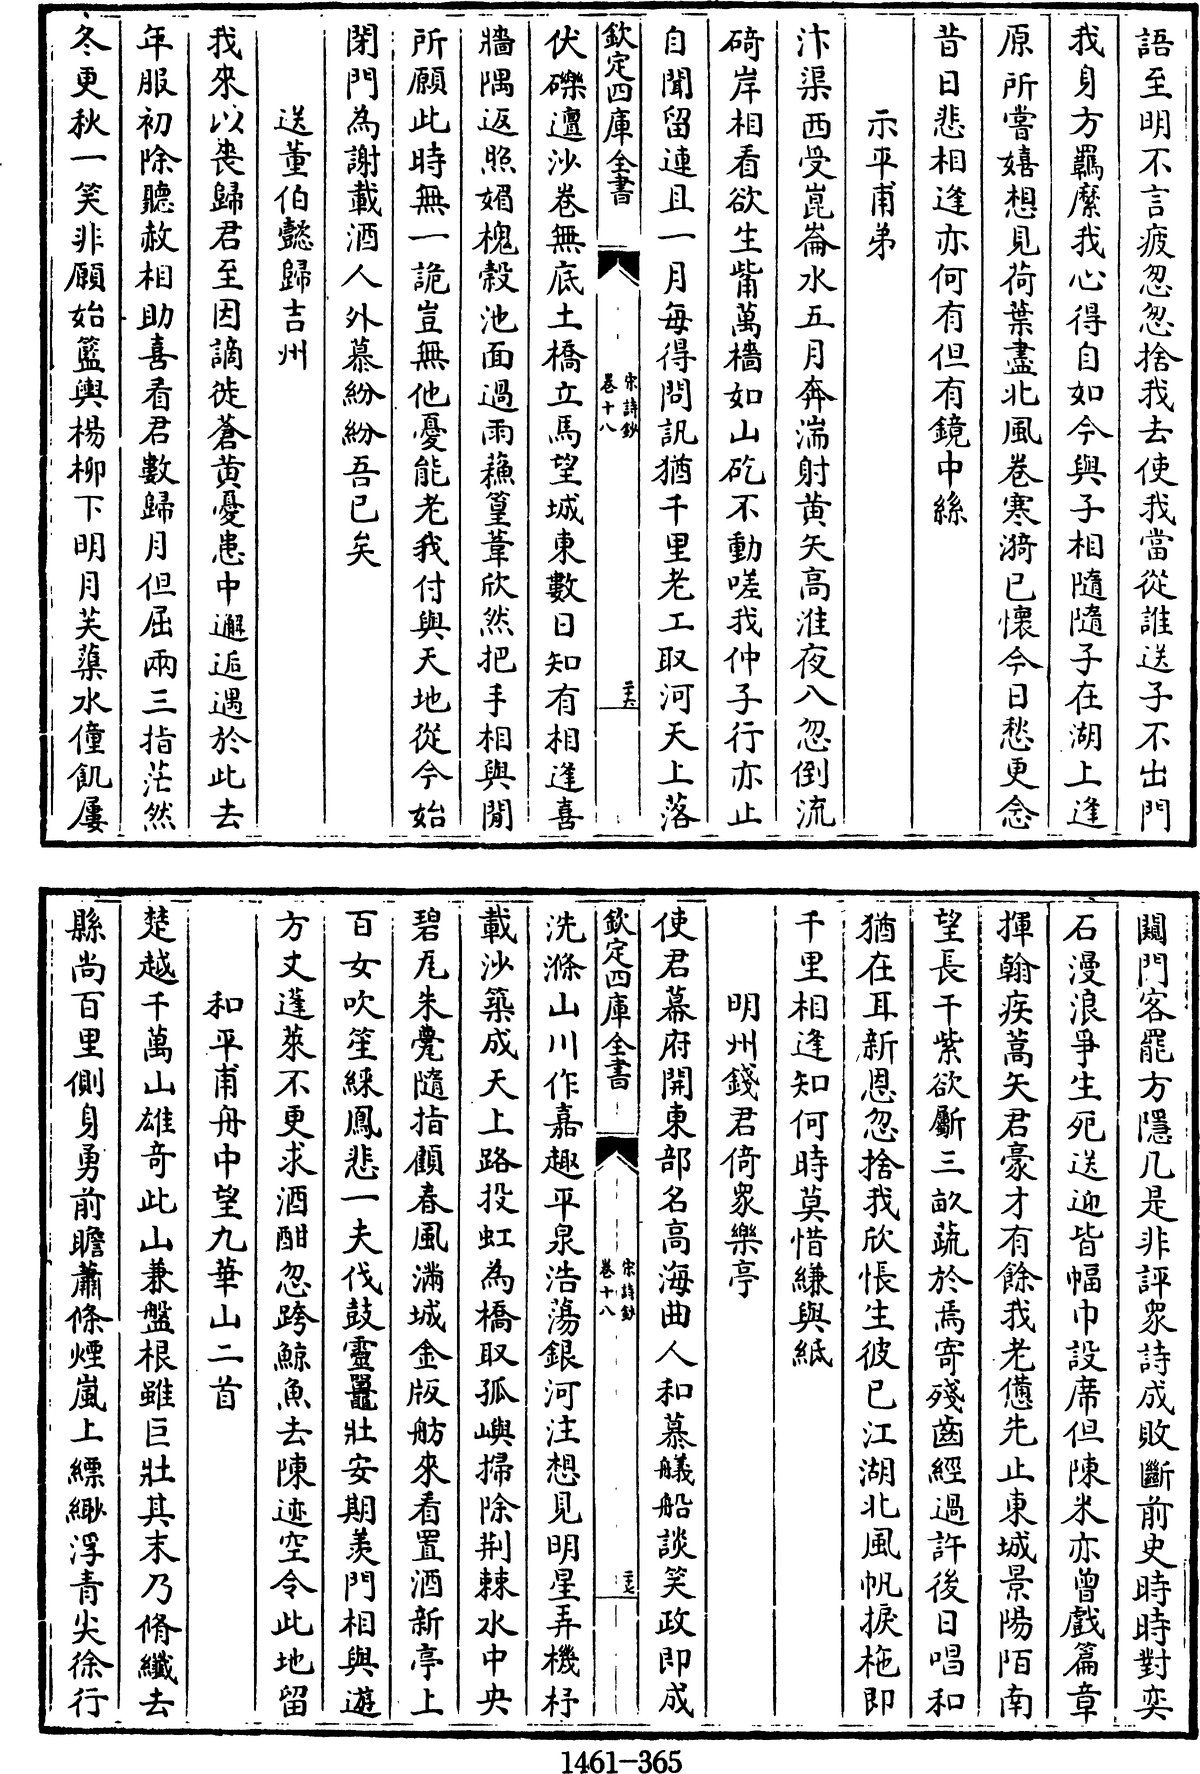 語至明不言疲忽忽捨我去使我當從誰送子不出門
我身方羈縻我心得自如今與子相隨隨子在湖上逢
原所嘗嬉想見荷葉盡北風卷寒漪已懷今日愁更念
昔日悲相逢亦何有但有鏡中絲
示平甫弟
汴渠西受崑崙水五月奔湍射黃矢高淮夜入忽倒流
碕岸相看欲生觜萬檣如山矻不動嗟我仲子行亦止
自聞留連且一月每得問訊猶千里老工取河天上落
欽定四庫全書
宋詩鈔
卷十八
伏礫邅沙卷無底土橋立馬望城東數日知有相逢喜
牆隅返照媚槐榖池面過雨蘓篁葦欣然把手相與閒
所願此時無一詭豈無他憂能老我付與天地從今始
閉門為謝載酒人外慕紛紛吾已矣
送董伯懿歸吉州
我來以喪歸君至因謫徙蒼黃憂患中邂逅遇於此去
年服初除聽赦相助喜看君數歸月但屈兩三指茫然
冬更秋一笑非願始籃輿楊柳下明月芙蕖水僮飢屢
闚門客罷方隱几是非評衆詩成敗斷前史時時對奕
石漫浪爭生死送迎皆幅巾設席但陳米亦曾戲篇章
揮翰疾蒿矢君豪才有餘我老憊先止東城景陽陌南
望長干紫欲斸三畝蔬於焉寄殘齒經過許後日唱和
猶在耳新恩忽捨我欣悵生彼已江湖北風帆捩柂即
千里相逢知何時莫惜縑與紙
明州錢君倚衆樂亭
使君幕府開東部名高海曲人和慕艤船談笑政即成
欽定四庫全書
宋詩鈔
卷十八
洗滌山川作嘉趣平泉浩蕩銀河注想見明星弄機杼
載沙築成天上路投虹為橋取孤嶼掃除荆棘水中央
碧瓦朱甍隨指顧春風滿城金版舫來看置酒新亭上
百女吹笙綵鳳悲一夫伐鼓靈鼉壯安期羨門相與遊
方丈蓬萊不更求酒酣忽跨鯨魚去陳迹空令此地留
和平甫舟中望九華山二首
楚越千萬山雄奇此山兼盤根雖巨壯其末乃脩纖去
縣尚百里側身勇前瞻蕭條煙嵐上縹緲浮青尖徐行
1461-365